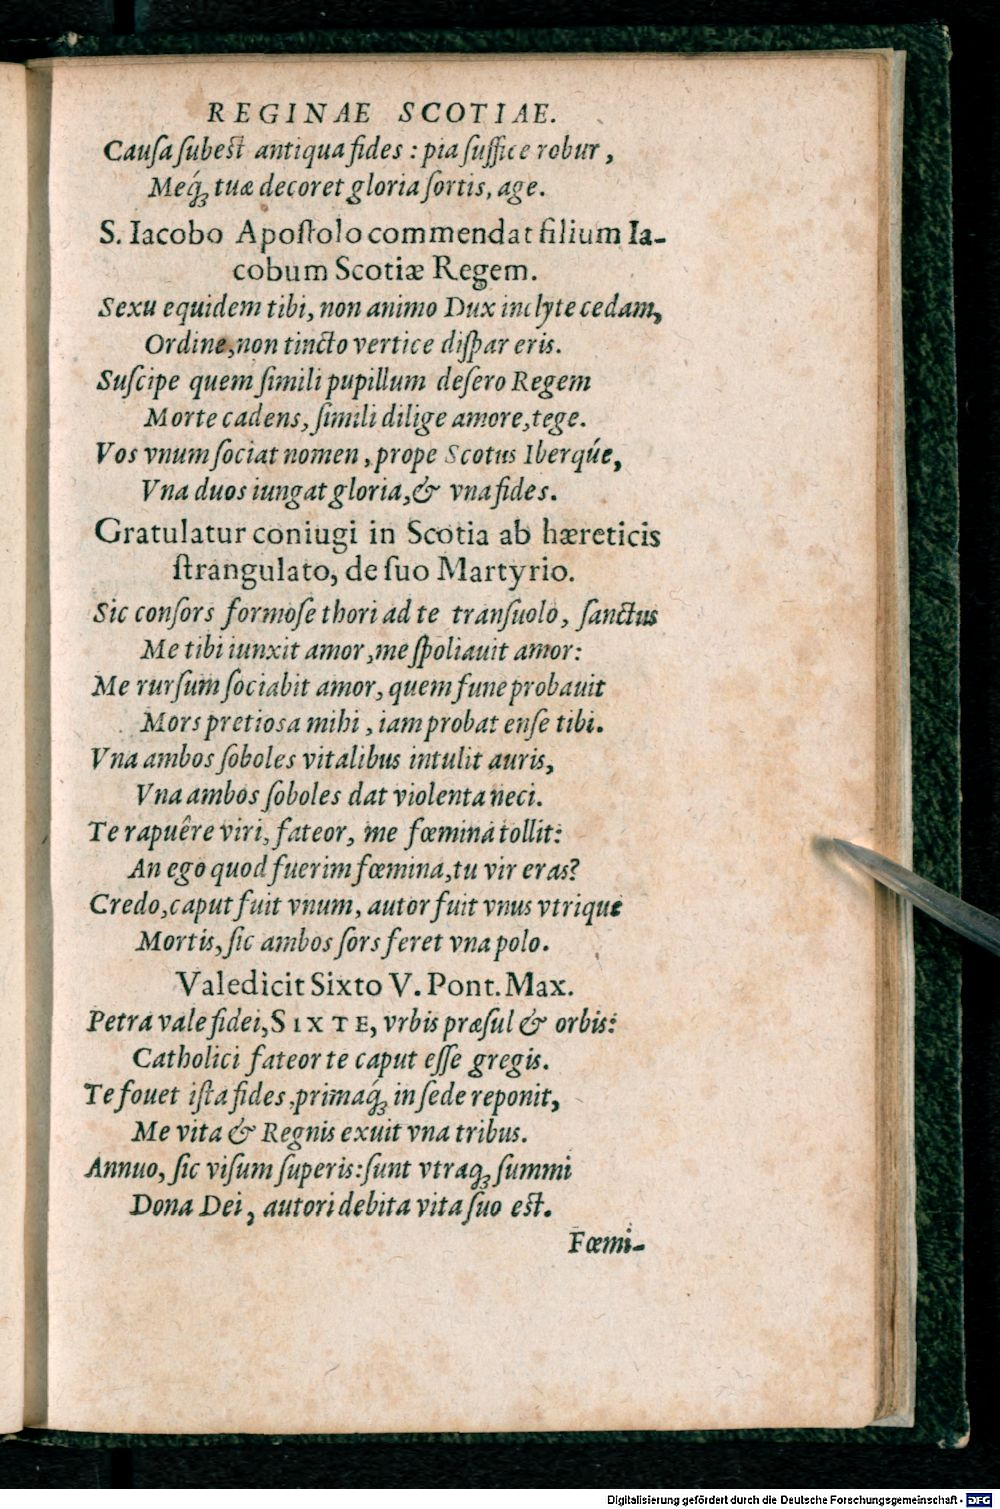 REGINAE SCOTIAE.
Cauſa ſubeſt antiqua fides : pia ſuffice robur,
Meq́ꝫ tuæ decoret gloria ſortis, age.
S. Iacobo Apoſtolo commendat filium Ia-
cobum Scotiæ Regem.
Sexu equidem tibi, non animo Dux inclyte cedam,
Ordine, non tincto vertice diſpar eris.
Suſcipe quem ſimili pupillum deſero Regem
Morte cadens, ſimili dilige amore, tege.
Vos vnum ſociat nomen, prope Scotus Iberqúe,
Vna duos iungat gloria, & vna fides.
Gratulatur coniugi in Scotia ab hæreticis
ſtrangulato, de ſuo Martyrio.
Sic conſors formoſe thori ad te tranſuolo, ſanctus
Me tibi iunxit amor, me ſpoliauit amor:
Me rurſum ſociabit amor, quem fune probauit
Mors pretioſa mihi, iam probat enſe tibi.
Vna ambos ſoboles vitalibus intulit auris,
Vna ambos ſoboles dat violenta neci.
Te rapuêre viri, fateor, me fœmina tollit:
An ego quod fuerim fœmina, tu vir eras?
Credo, caput fuit vnum, autor fuit vnus vtrique
Mortis, ſic ambos ſors feret vna polo.
Valedicit Sixto V. Pont. Max.
Petra vale fidei, SIXTE, vrbis præſul & orbis:
Catholici fateor te caput eſſe gregis.
Te fouet iſta fides, primaq́ꝫ in ſede reponit,
Me vita & Regnis exuit vna tribus.
Annuo, ſic viſum ſuperis: ſunt vtraqꝫ ſummi
Dona Dei, autori debita vita ſuo eſt.
Fœmi-
Digitalisierung gefördert durch die Deutsche Forschungsgemeinschaft - DFG